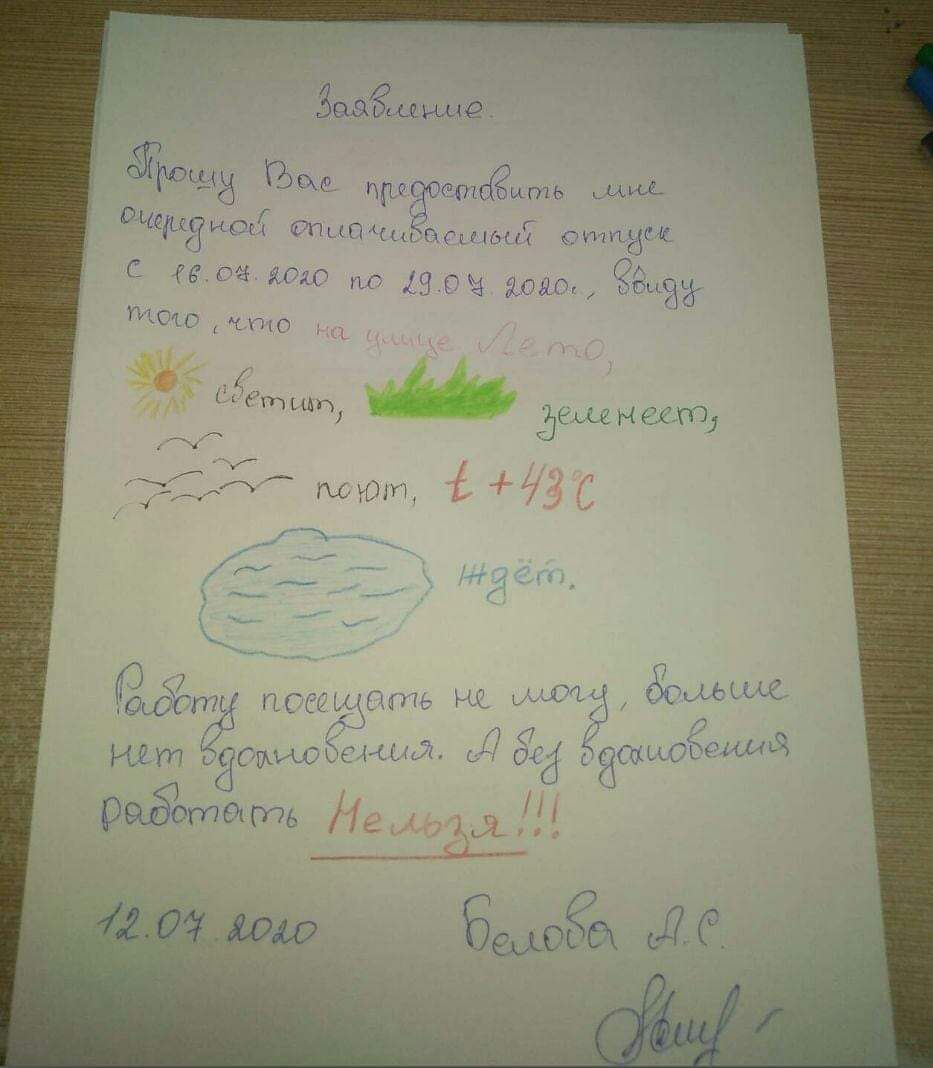 Заявление.
Прошу Вас предоставить мне
очередной оплачиваемый отпуск
с 16.07.2020 по 29.07.2020г., ввиду
того, что на улице Лето,
светит, зеленеет,
поют, t +43°C
ждёт.
Работу посещать не могу, больше
нет вдохновения. А без вдохновения
работать Нельзя!!!
12.07.2020 Белова А.С.